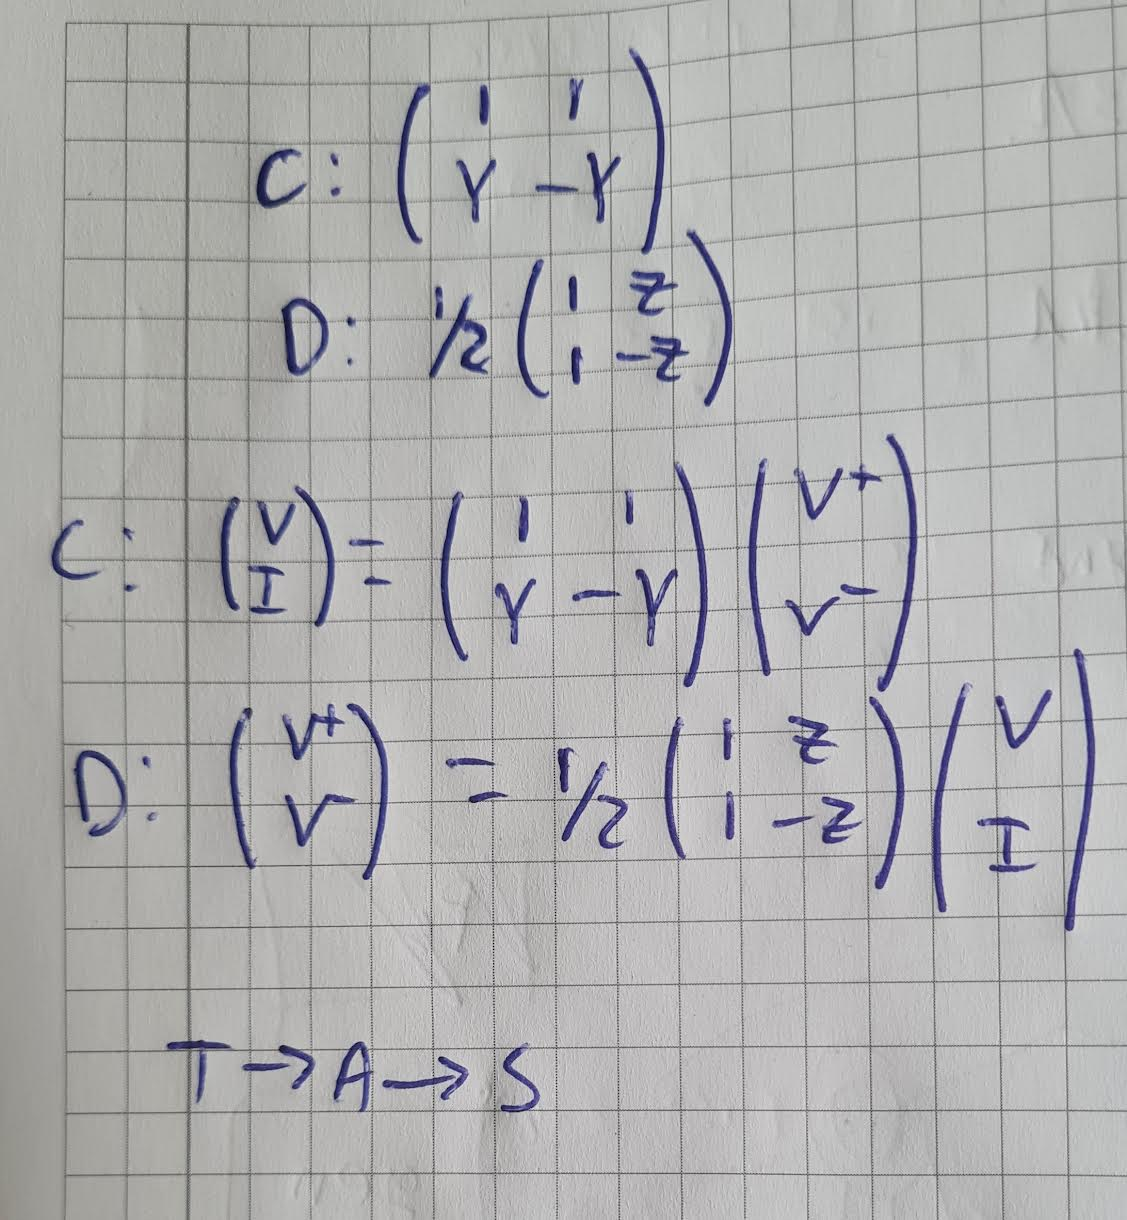 C: ( 1 1
Y -Y )
D: 1/2 ( 1 Z
1 -Z )
C: ( V
I ) = ( 1 1
Y -Y ) ( V+
V- )
D: ( V+
V- ) = 1/2 ( 1 Z
1 -Z ) ( V
I )
T → A → S